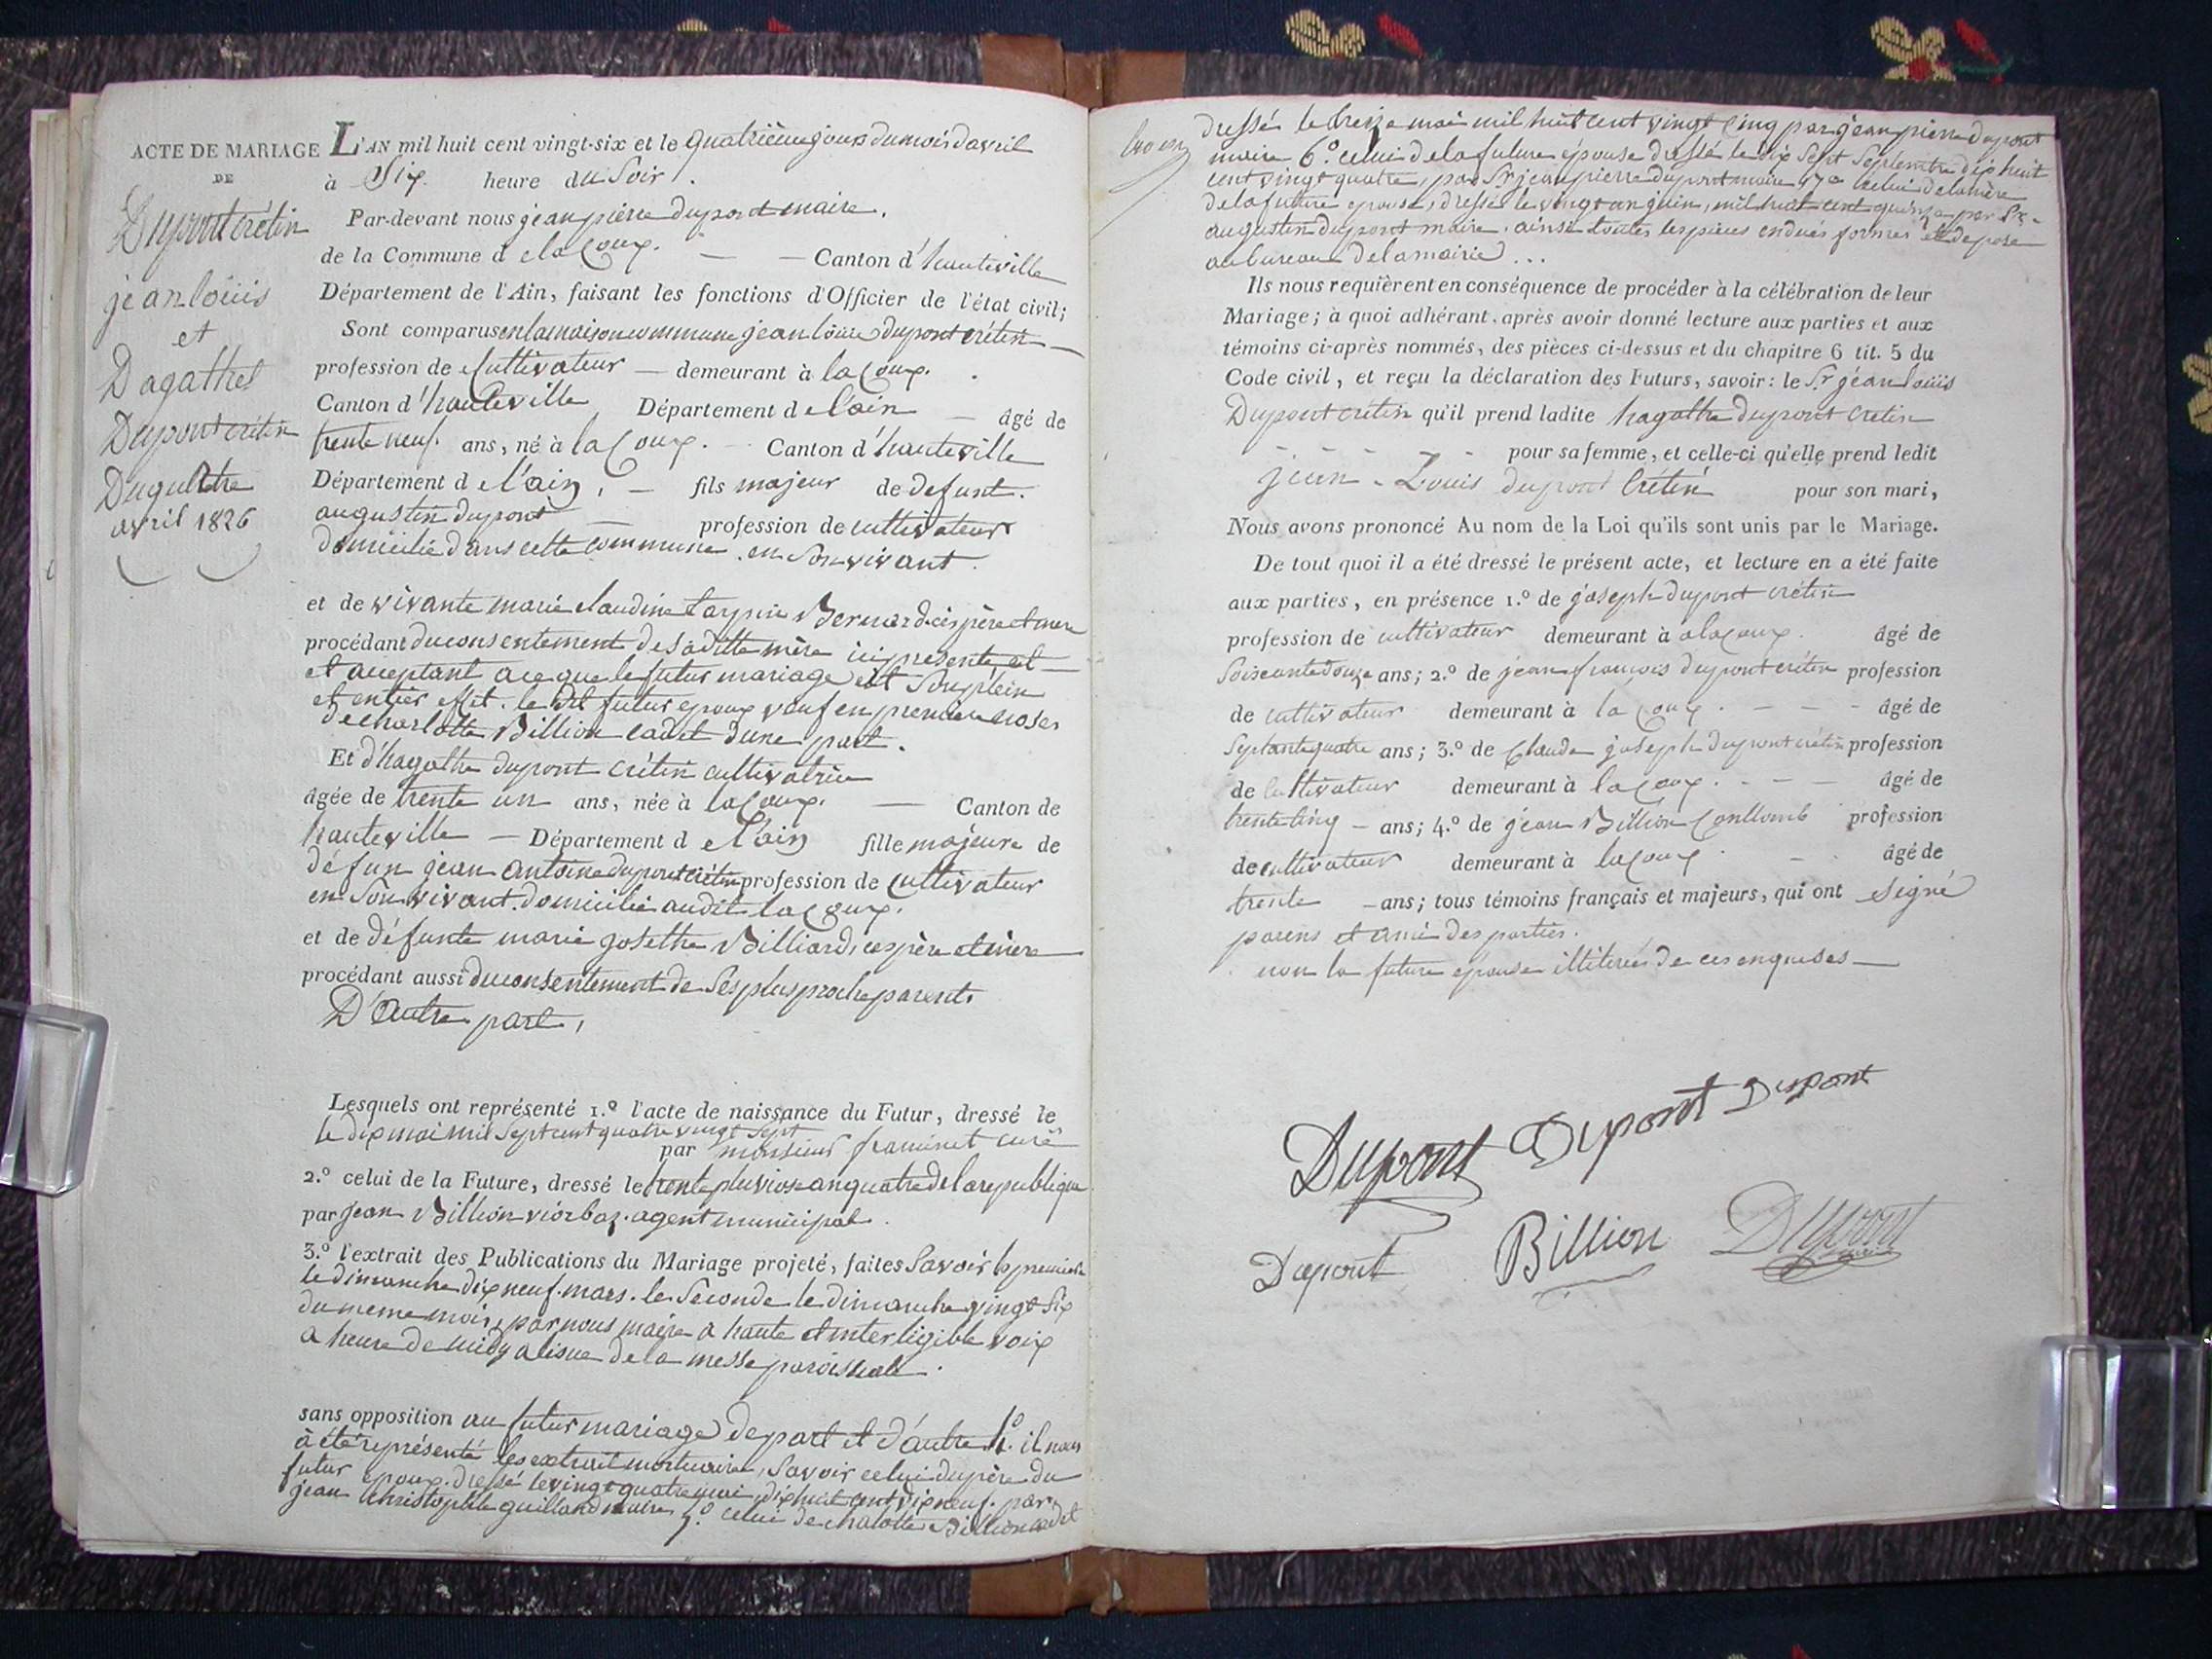 ACTE DE MARIAGE
DE
Dupont crétin
jean loüis
et
Dagathes
Dupont crétin
Duquatre
avril 1826
L'AN mil huit cent vingt-six et le quatrième jours du mois d'avril
à Six heure du Soir.
Par-devant nous jean pierre dupont maire.
de la Commune d e lacoux. — — Canton d'hauteville
Département de l'Ain, faisant les fonctions d'Officier de l'état civil;
Sont comparus en la maison commune jean louis dupont crétin —
profession de Cultivateur — demeurant à lacoux.
Canton d'hauteville Département d e l'ain — âgé de
trente neuf ans, né à lacoux. Canton d'hauteville
Département d e l'ain, — fils majeur de defunt.
augustin dupont — profession de cultivateur
domicilié dans cette commune en Son vivant.
et de vivante marie claudine Carpin Bernard ces père et mere
procédant du consentement de Saditte mère ici presente, et —
et acceptant a ce que le futur mariage est Son plein
et entier effet. le dit futur epoux veuf en premiere noses
de charlotte Billion cadet d'une part.
Et d'hagathe dupont crétin cultivatrice
âgée de trente un ans, née à lacoux. — Canton de
hauteville — Département d e l'ain fille majeure de
défun jean antoine dupont crétin profession de Cultivateur
en Son vivant. domicilié audit lacoux.
et de défunte marie josethe Billiard, ces père et mère —
procédant aussi du consentement de Ses plus proche parents
D'autre part,
Lesquels ont représenté 1.º l'acte de naissance du Futur, dressé le
le dix mai mil Sept cent quatre vingt Sept
par monsieur framinet curé
2.º celui de la Future, dressé le trente pluviose an quatre de la republique
par jean Billion viorbaz. agent municipal.
3.º l'extrait des Publications du Mariage projeté, faites Savoir la premiere
le dimanche dix neuf. mars. le Seconde le dimanche vingt Six
du meme mois, par nous maire a haute et interligible voix
a heure de midy a lisue de la messe paroissiale.
sans opposition au futur mariage de part et d'autre. 4.º il nous
à été représenté les extrait mortuaire, Savoir celui du père du
futur epoux. dressé le vingt quatre mai, dixhuit cent dix neuf. par
jean Christophle guilland maire, 5.º celui de chalotte Billion cadet
dressé le treize mai mil huit cent vingt Cinq par jean pierre dupont
maire 6.º celui de la future épouse dressé le dix Sept Septembre dix huit
cent vingt quatre, par Sr jean pierre dupont maire 7º celui de la mère
de la future epouse, dressé le vingt un juin, mil huit cent quinze par Sr.
augustin dupont maire. ainsi toutes les pièces en dues formes et depose
au bureau de la mairie...
Ils nous requièrent en conséquence de procéder à la célébration de leur
Mariage; à quoi adhérant, après avoir donné lecture aux parties et aux
témoins ci-après nommés, des pièces ci-dessus et du chapitre 6 tit. 5 du
Code civil, et reçu la déclaration des Futurs, savoir: le Sr jean louis
Dupont crétin qu'il prend ladite hagathe dupont cretin
pour sa femme, et celle-ci qu'elle prend ledit
jean - Louis dupont Crétin pour son mari,
Nous avons prononcé Au nom de la Loi qu'ils sont unis par le Mariage.
De tout quoi il a été dressé le présent acte, et lecture en a été faite
aux parties, en présence 1.º de joseph dupont crétin
profession de cultivateur demeurant à a lacoux. âgé de
Soiscante douze ans; 2.º de jean françois dupont crétin profession
de cultivateur demeurant à la coux. - - - âgé de
Septante quatre ans; 3.º de Claude joseph dupont crétin profession
de Cultivateur demeurant à lacoux. - - — âgé de
trente Cinq — ans; 4.º de jean Billion Conllomb profession
de cultivateur demeurant à lacoux. âgé de
trente — ans; tous témoins français et majeurs, qui ont Signé
parens et ami des parties.
non la future épouse illiterée de ces enquises —
Dupont Dupont Dupont
Dupont Billion Dupont